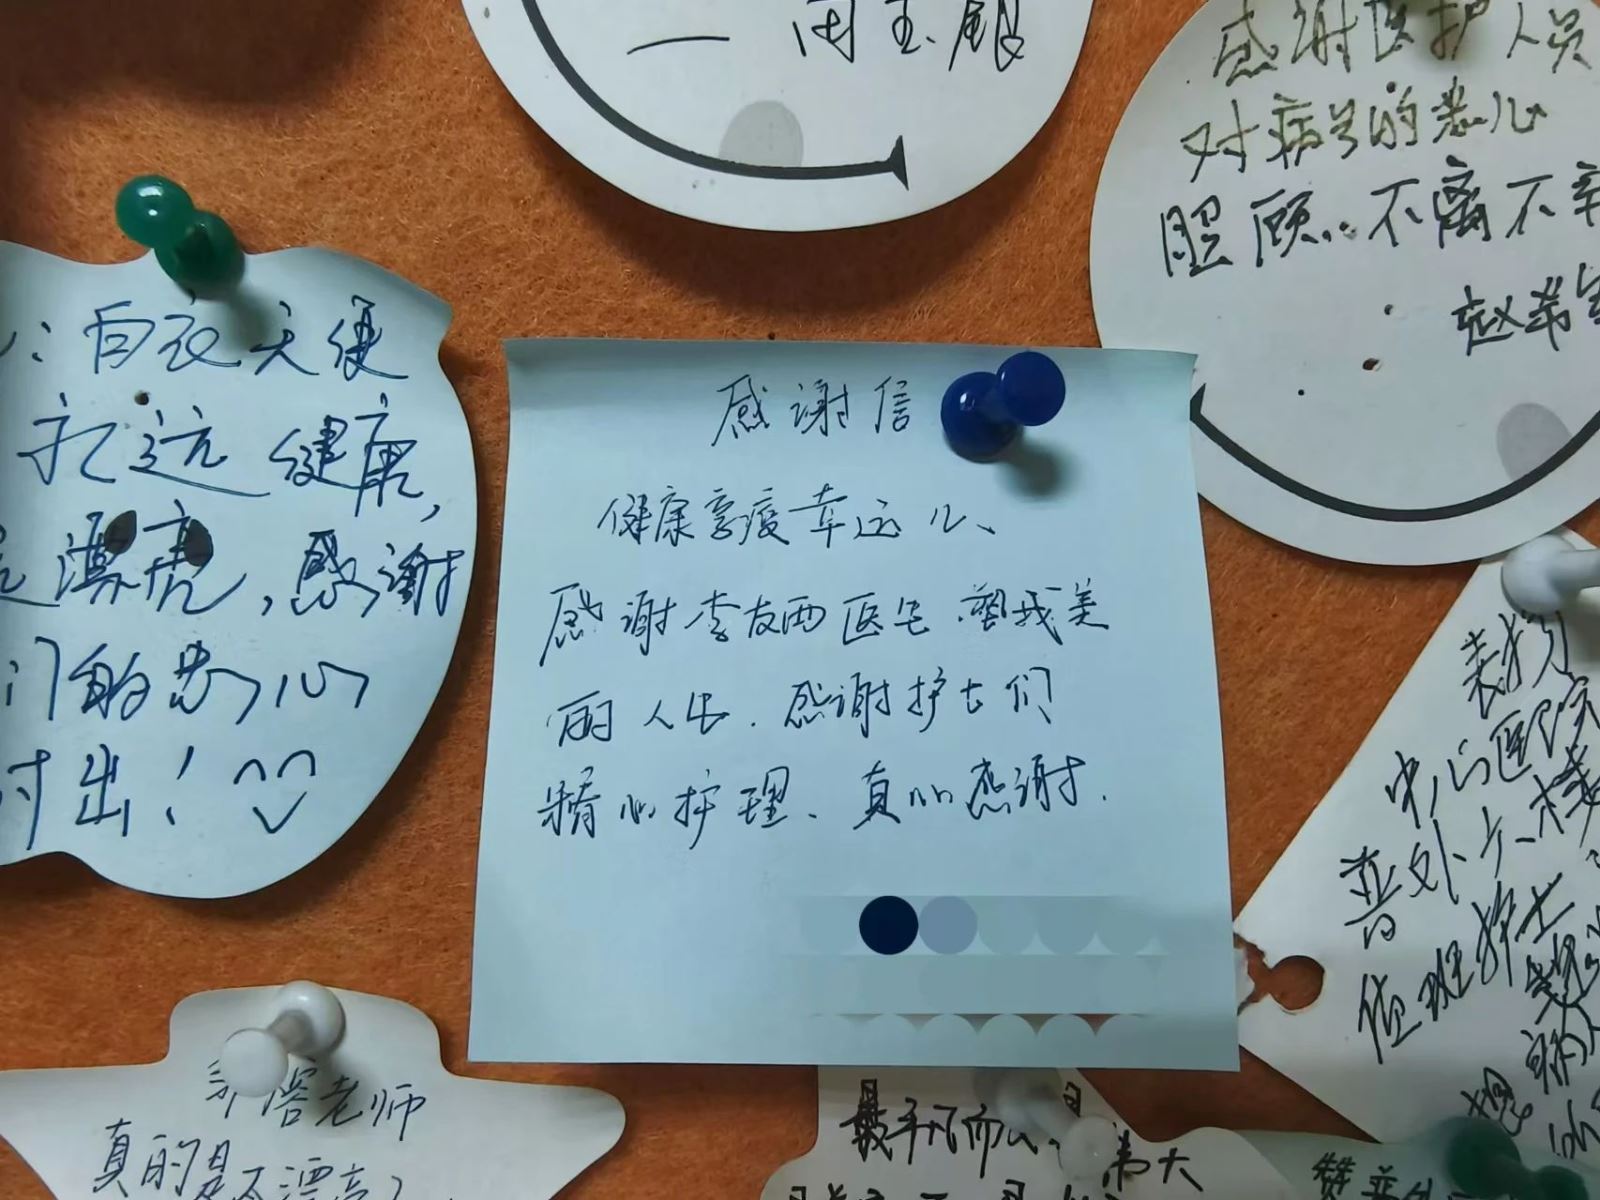 感谢医护人员
对病号的悉心
照顾..不离不
白衣天使
永远健康,
漂亮,感谢
们的悉心
付出!
感谢信
健康享疫幸运儿、
感谢李友西医生.塑我美
丽人生.感谢护士们
精心护理、真心感谢.
表扬
中心医院
普外六楼
值班护士
老师
真的是太漂亮了
最平凡而
伟大